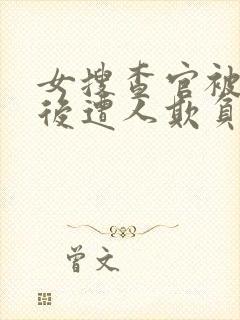 女搜查官被
後遭人欺負
曾文